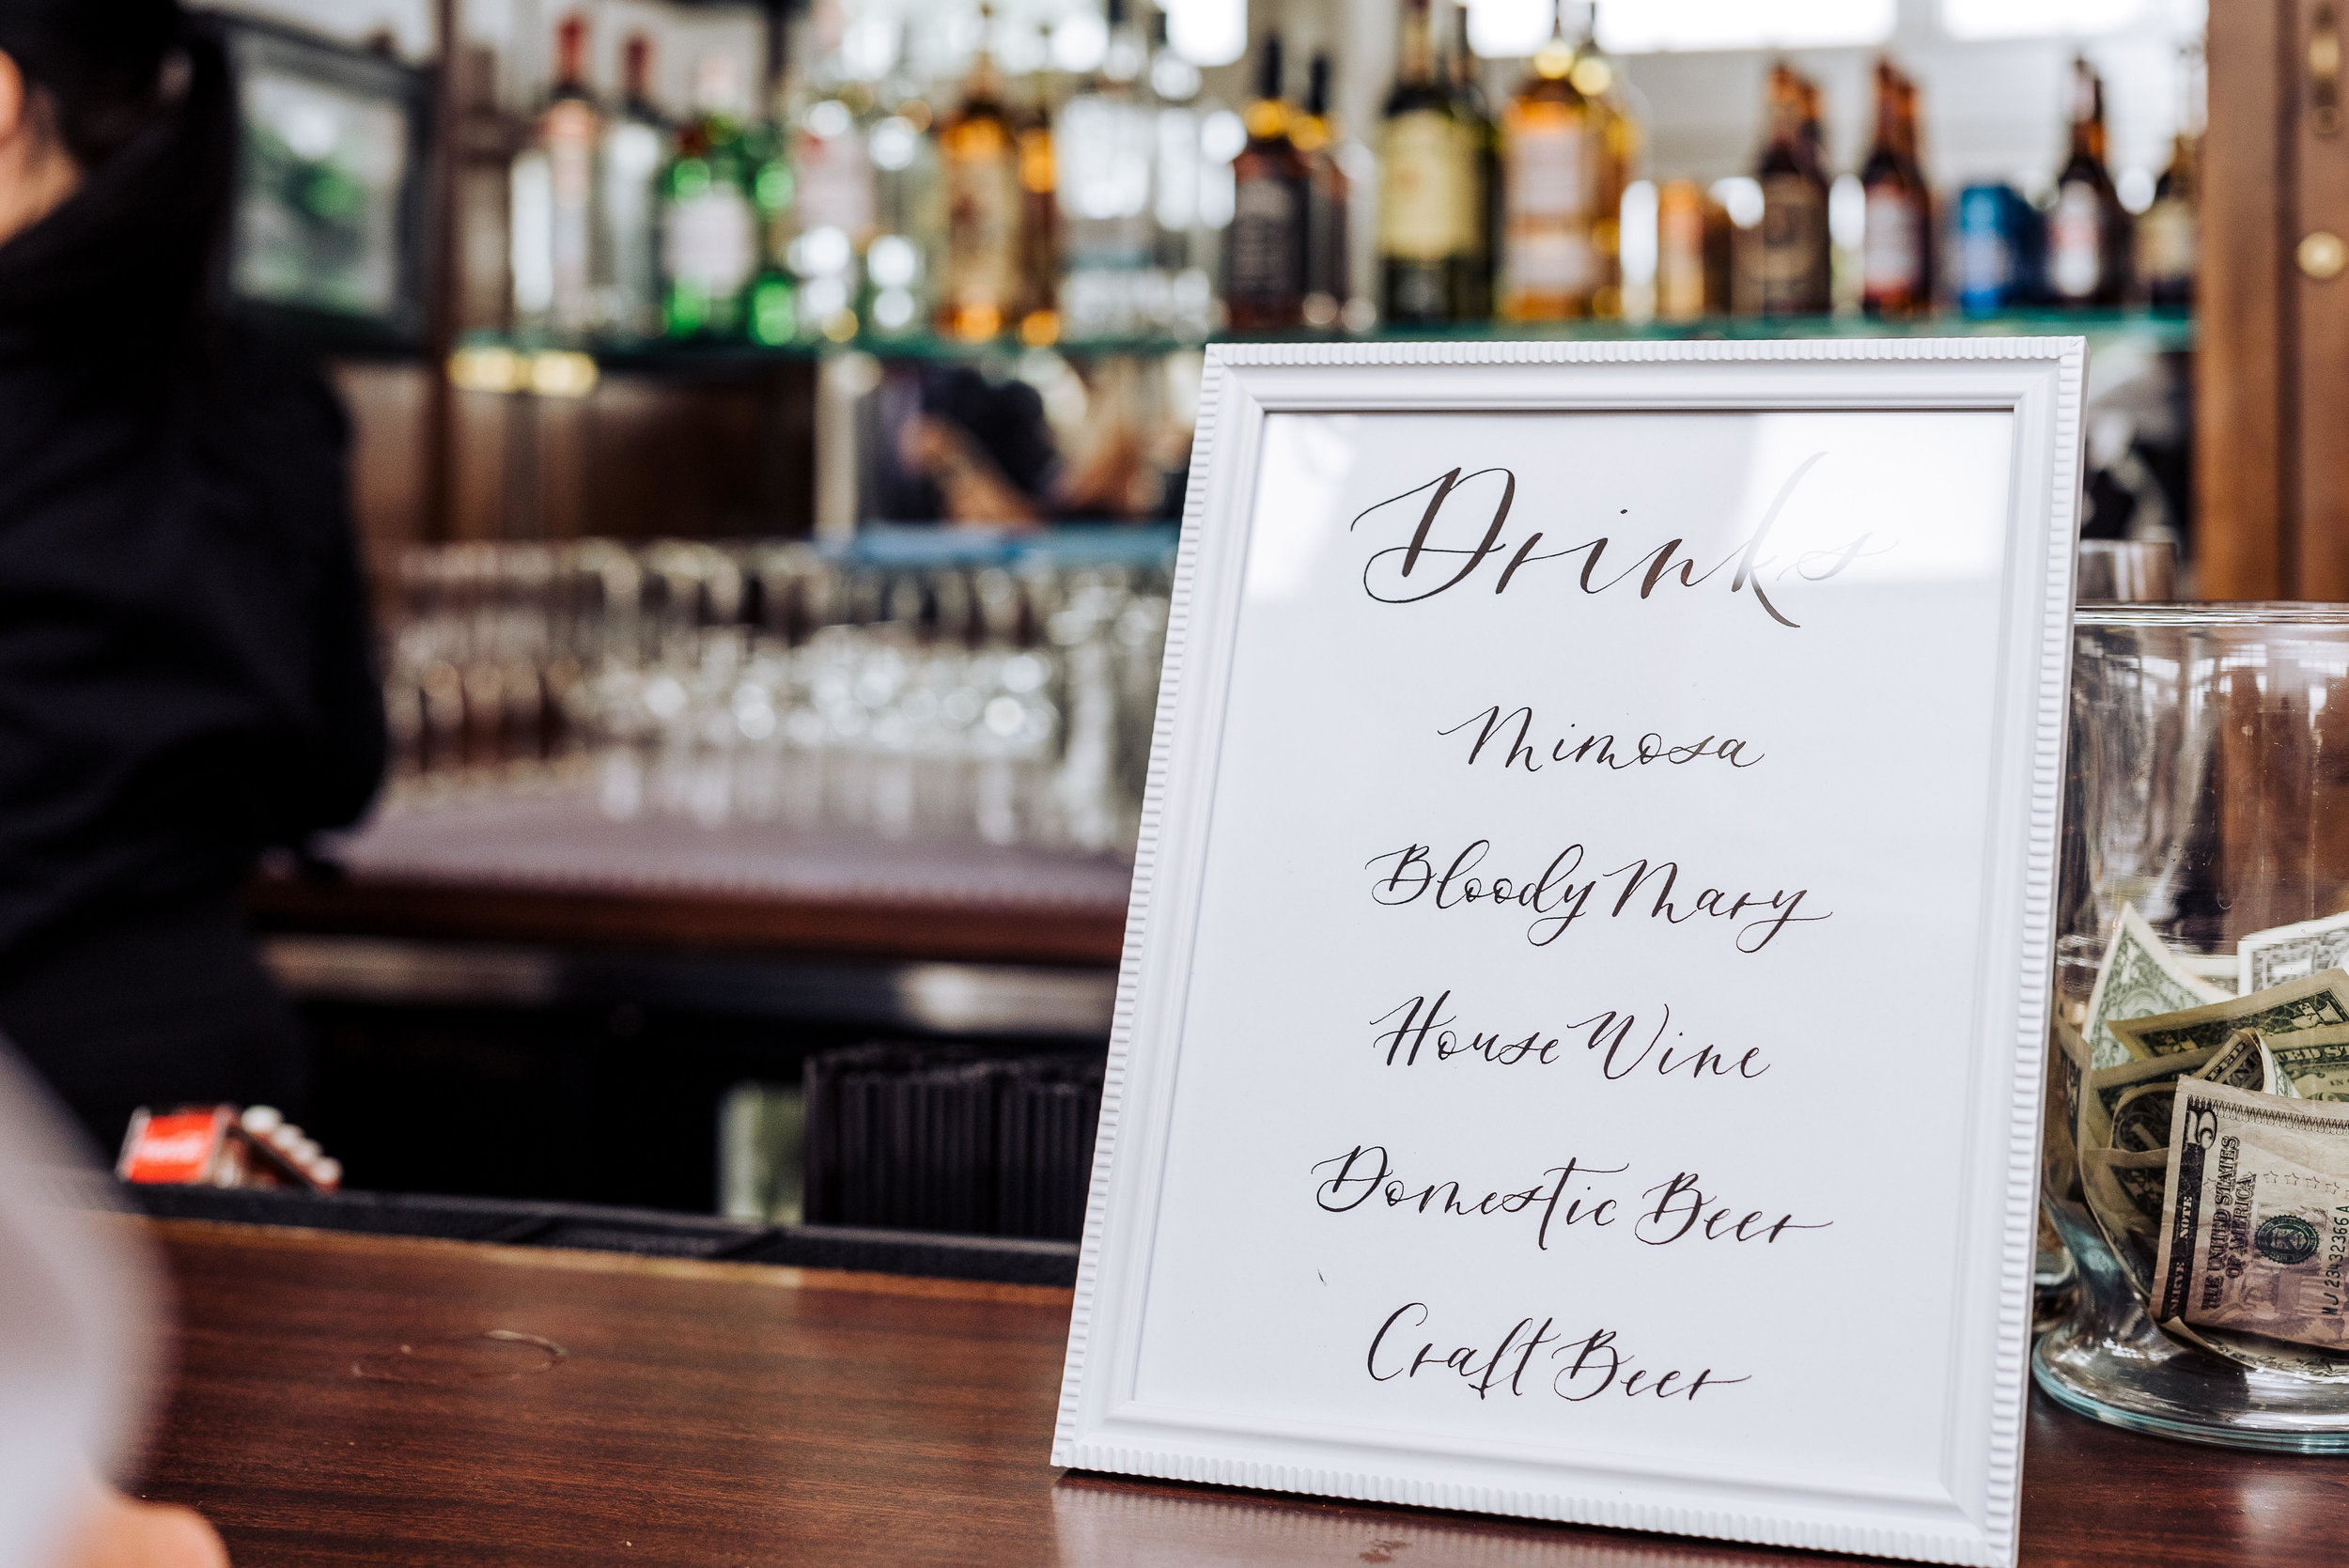 Drinks
Mimosa
Bloody Mary
House Wine
Domestic Beer
Craft Beer
5
THE UNITED STATES
OF AMERICA